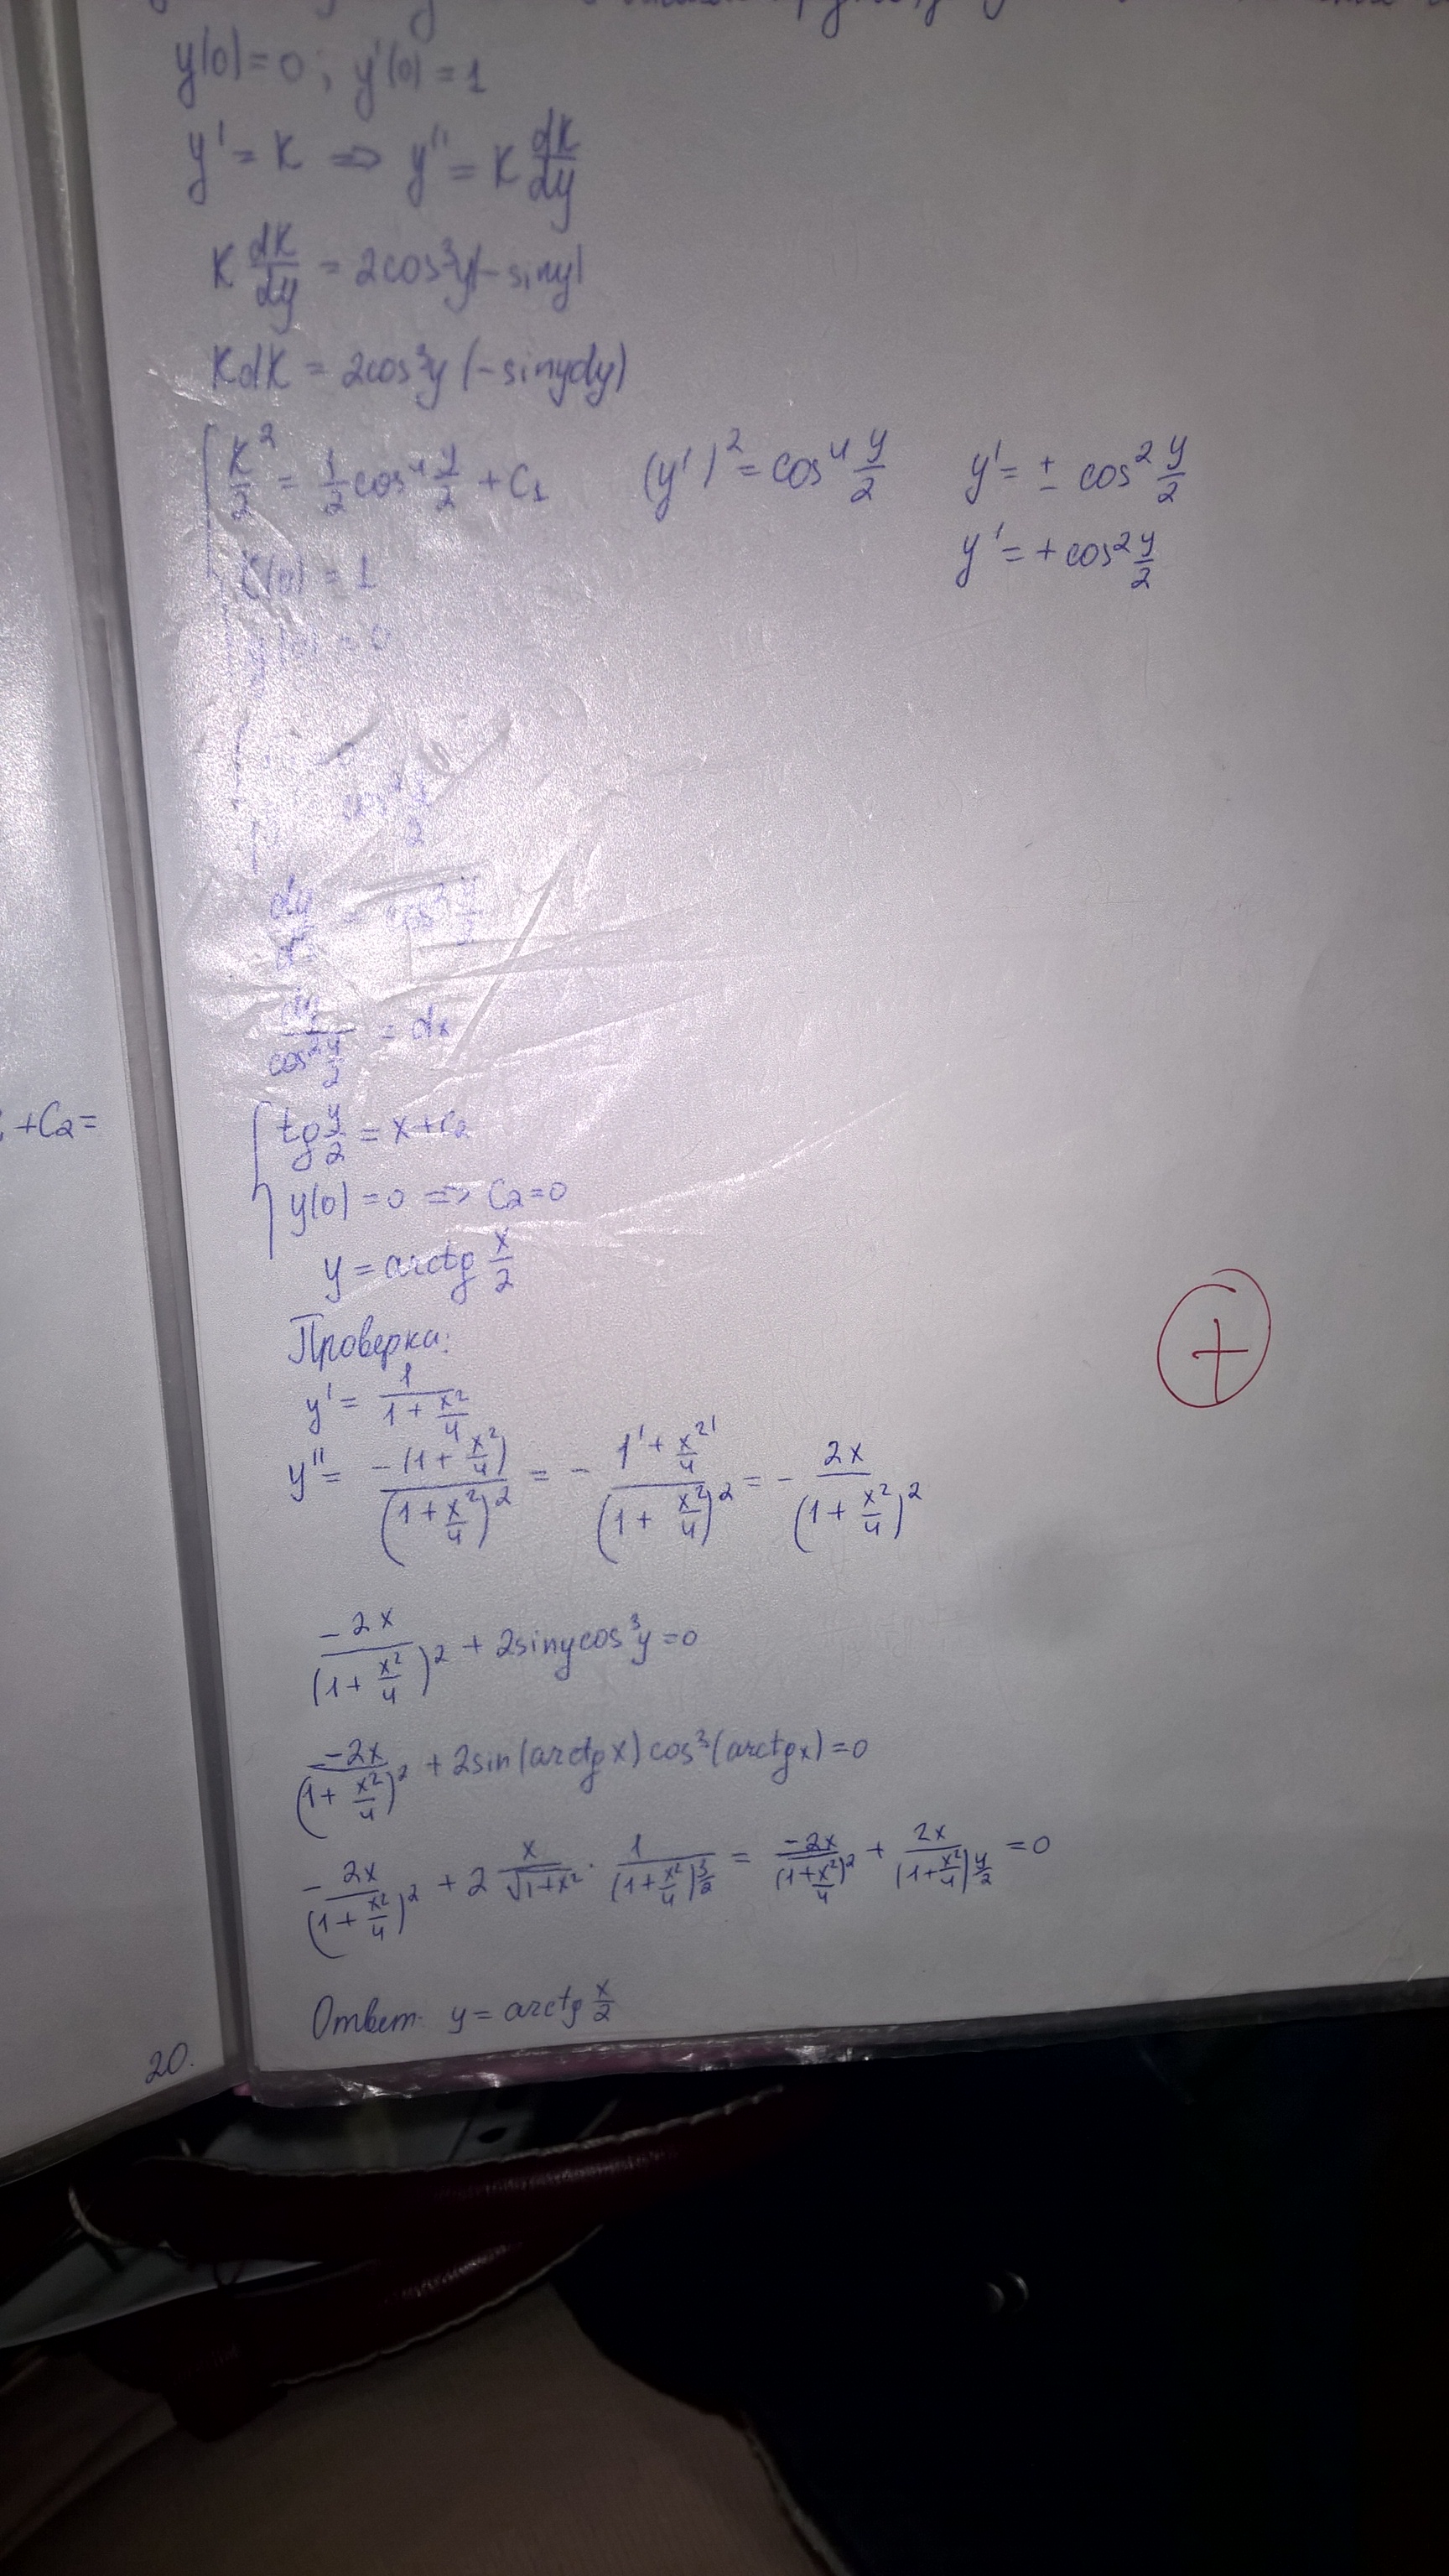 y(0)=0; y'(0)=1
y' = K ⇒ y'' = K dK/dy
K dK/dy = 2cos³y(-siny)
KdK = 2cos³y (-sinydy)
K²/2 = 1/2 cos⁴ y/2 + C₁ (y')² = cos⁴ y/2 y' = ± cos² y/2
y' = + cos² y/2
K(0) = 1
y(0) = 0
dy/dx = cos² y/2
dy/cos² y/2 = dx
+C₂=
tg y/2 = x+C₂
y(0) = 0 ⇒ C₂=0
y = arctg x/2
Проверка:
y' = 1/(1 + x²/4)
y'' = -(1 + x²/4)/(1 + x²/4)² = - (1' + x²'/4)/(1 + x²/4)² = - 2x/(1 + x²/4)²
-2x/(1 + x²/4)² + 2sinycos³y = 0
-2x/(1 + x²/4)² + 2sin(arctgx)cos³(arctgx) = 0
- 2x/(1 + x²/4)² + 2 x/√(1+x²) · 1/(1 + x²/4)^(3/2) = -2x/(1 + x²/4)² + 2x/(1 + x²/4)^(4/2) = 0
Ответ: y = arctg x/2
20.
+